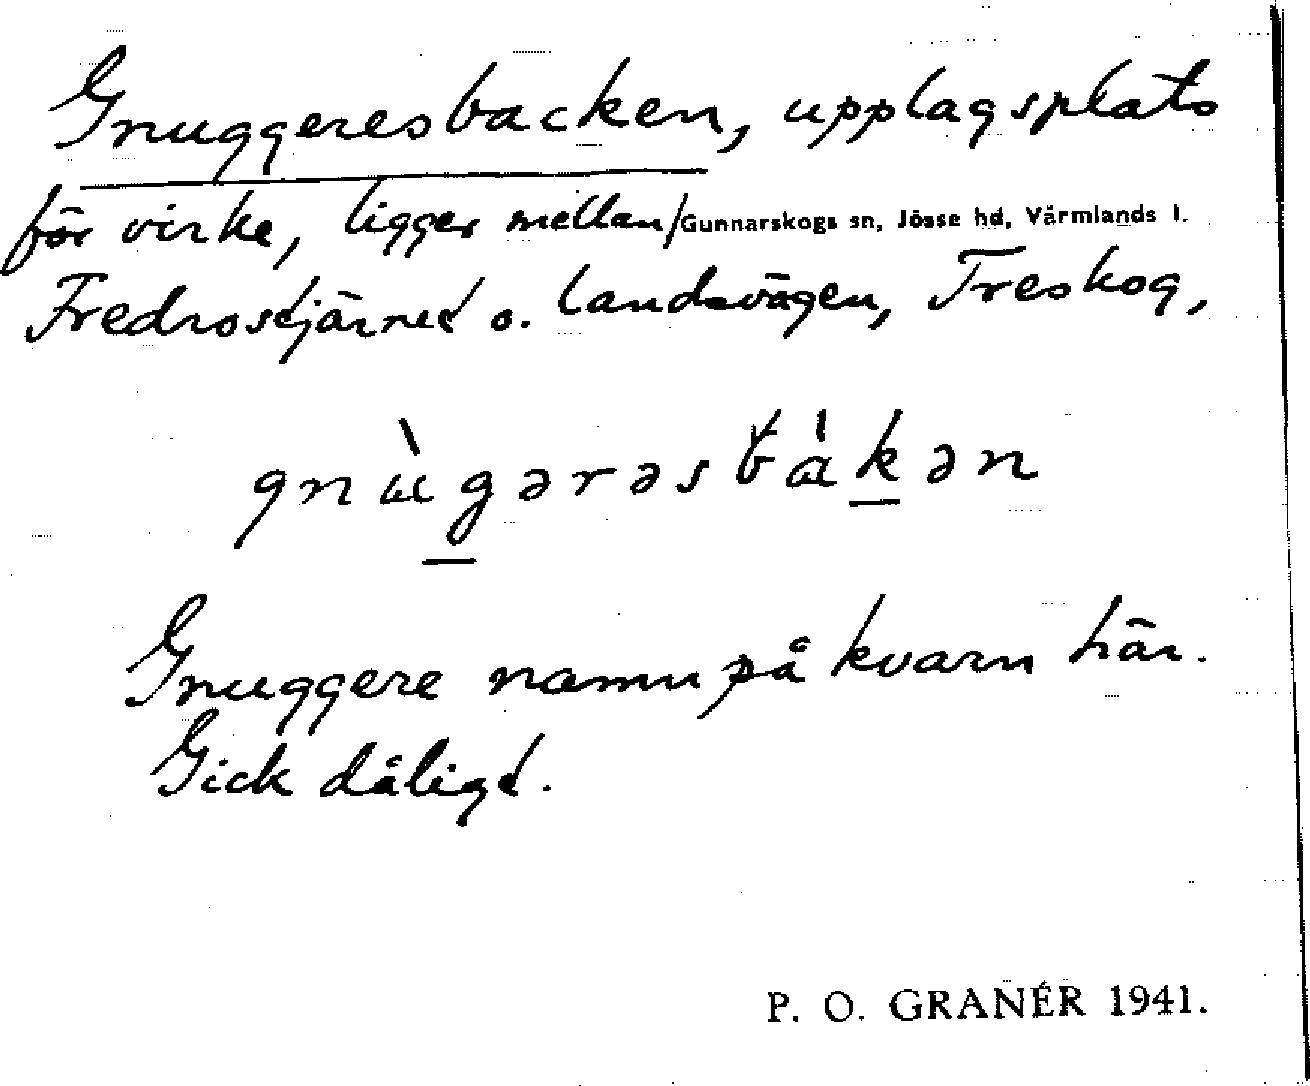 Gnuggeresbacken, upplagsplats
för virke, ligger mellan / Gunnarskogs sn, Jösse hd, Värmlands l.
Fredrostjärnet o. landsvägen, Treskog,
Gnuggere namn på kvarn här.
Gick dåligt.
P. O. GRANÉR 1941.